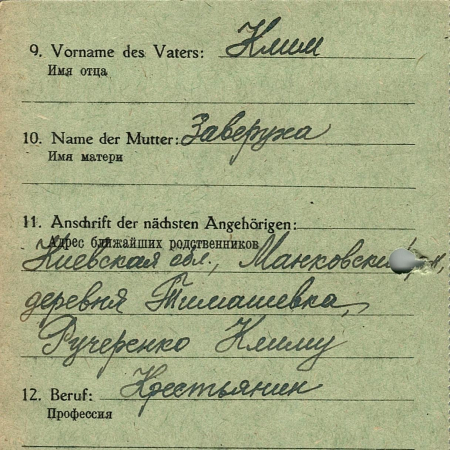 9. Vorname des Vaters: Клим
Имя отца
10. Name der Mutter: Заверуха
Имя матери
11. Anschrift der nächsten Angehörigen:
Адрес ближайших родственников
Киевская обл., Манковский
деревня Тимашевка,
Ручеренко Климу
12. Beruf: Крестьянин
Профессия